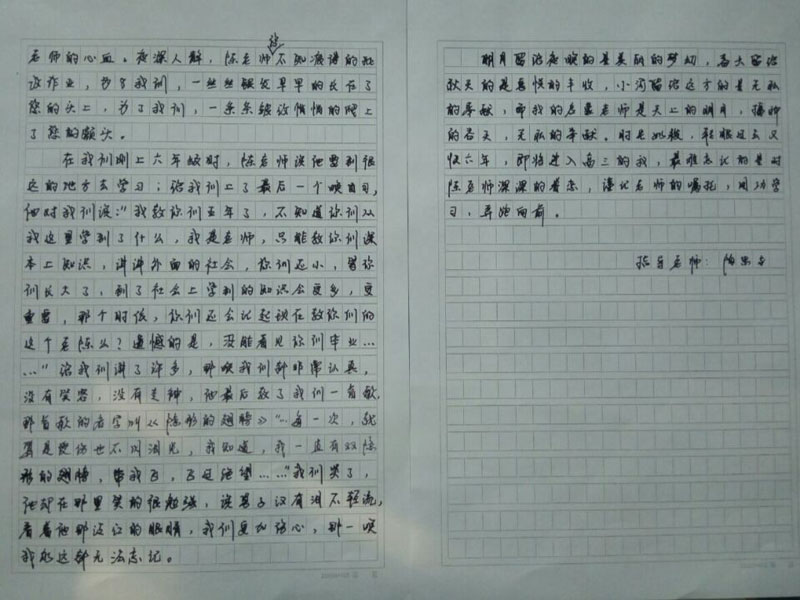 老师的心血。夜深人静,陈老师不知疲倦的批
改作业,为了我们,一丝丝银发早早的长在了
您的头上,为了我们,一条条皱纹悄悄的爬上
了您的额头。
在我们刚上六年级时,陈老师说他要到很
远的地方去学习;给我们上了最后一个晚自习,
他对我们说:"我教你们五年了,不知道你们从
我这里学到了什么,我是老师,只能教你们课
本上知识,讲讲外面的社会,你们还小,等你
们长大了,到了社会上学到的知识会更多,更
重要,那个时候,你们还会记起现在教你们的
这个老陈么?遗憾的是,没能看见你们毕业……
……"给我们讲了许多,那晚我们都非常认真,
没有笑容,没有走神,他最后教了我们一首歌,
那首歌的名字叫《隐形的翅膀》"…每一次,就
算是受伤也不闪泪光,我知道,我一直有双隐
形的翅膀,带我飞,飞过绝望……"我们哭了,
他却在那里笑的很勉强,说男子汉有泪不轻流,
看着他那泛红的眼睛,我们更加伤心,那一晚
我永远都无法忘记。
明月留给夜晚的是美丽的梦幻,春天留给
秋天的是喜悦的丰收,小河留给远方的是无私
的奉献,而我的启蒙老师是天上的明月,播种
的春天,无私的奉献。时光如梭,转眼过去又
快六年,即将进入高三的我,最难忘记的是对
陈老师深深的眷恋,谨记老师的嘱托,用功学
习,奔驰向前。
指导老师:陶